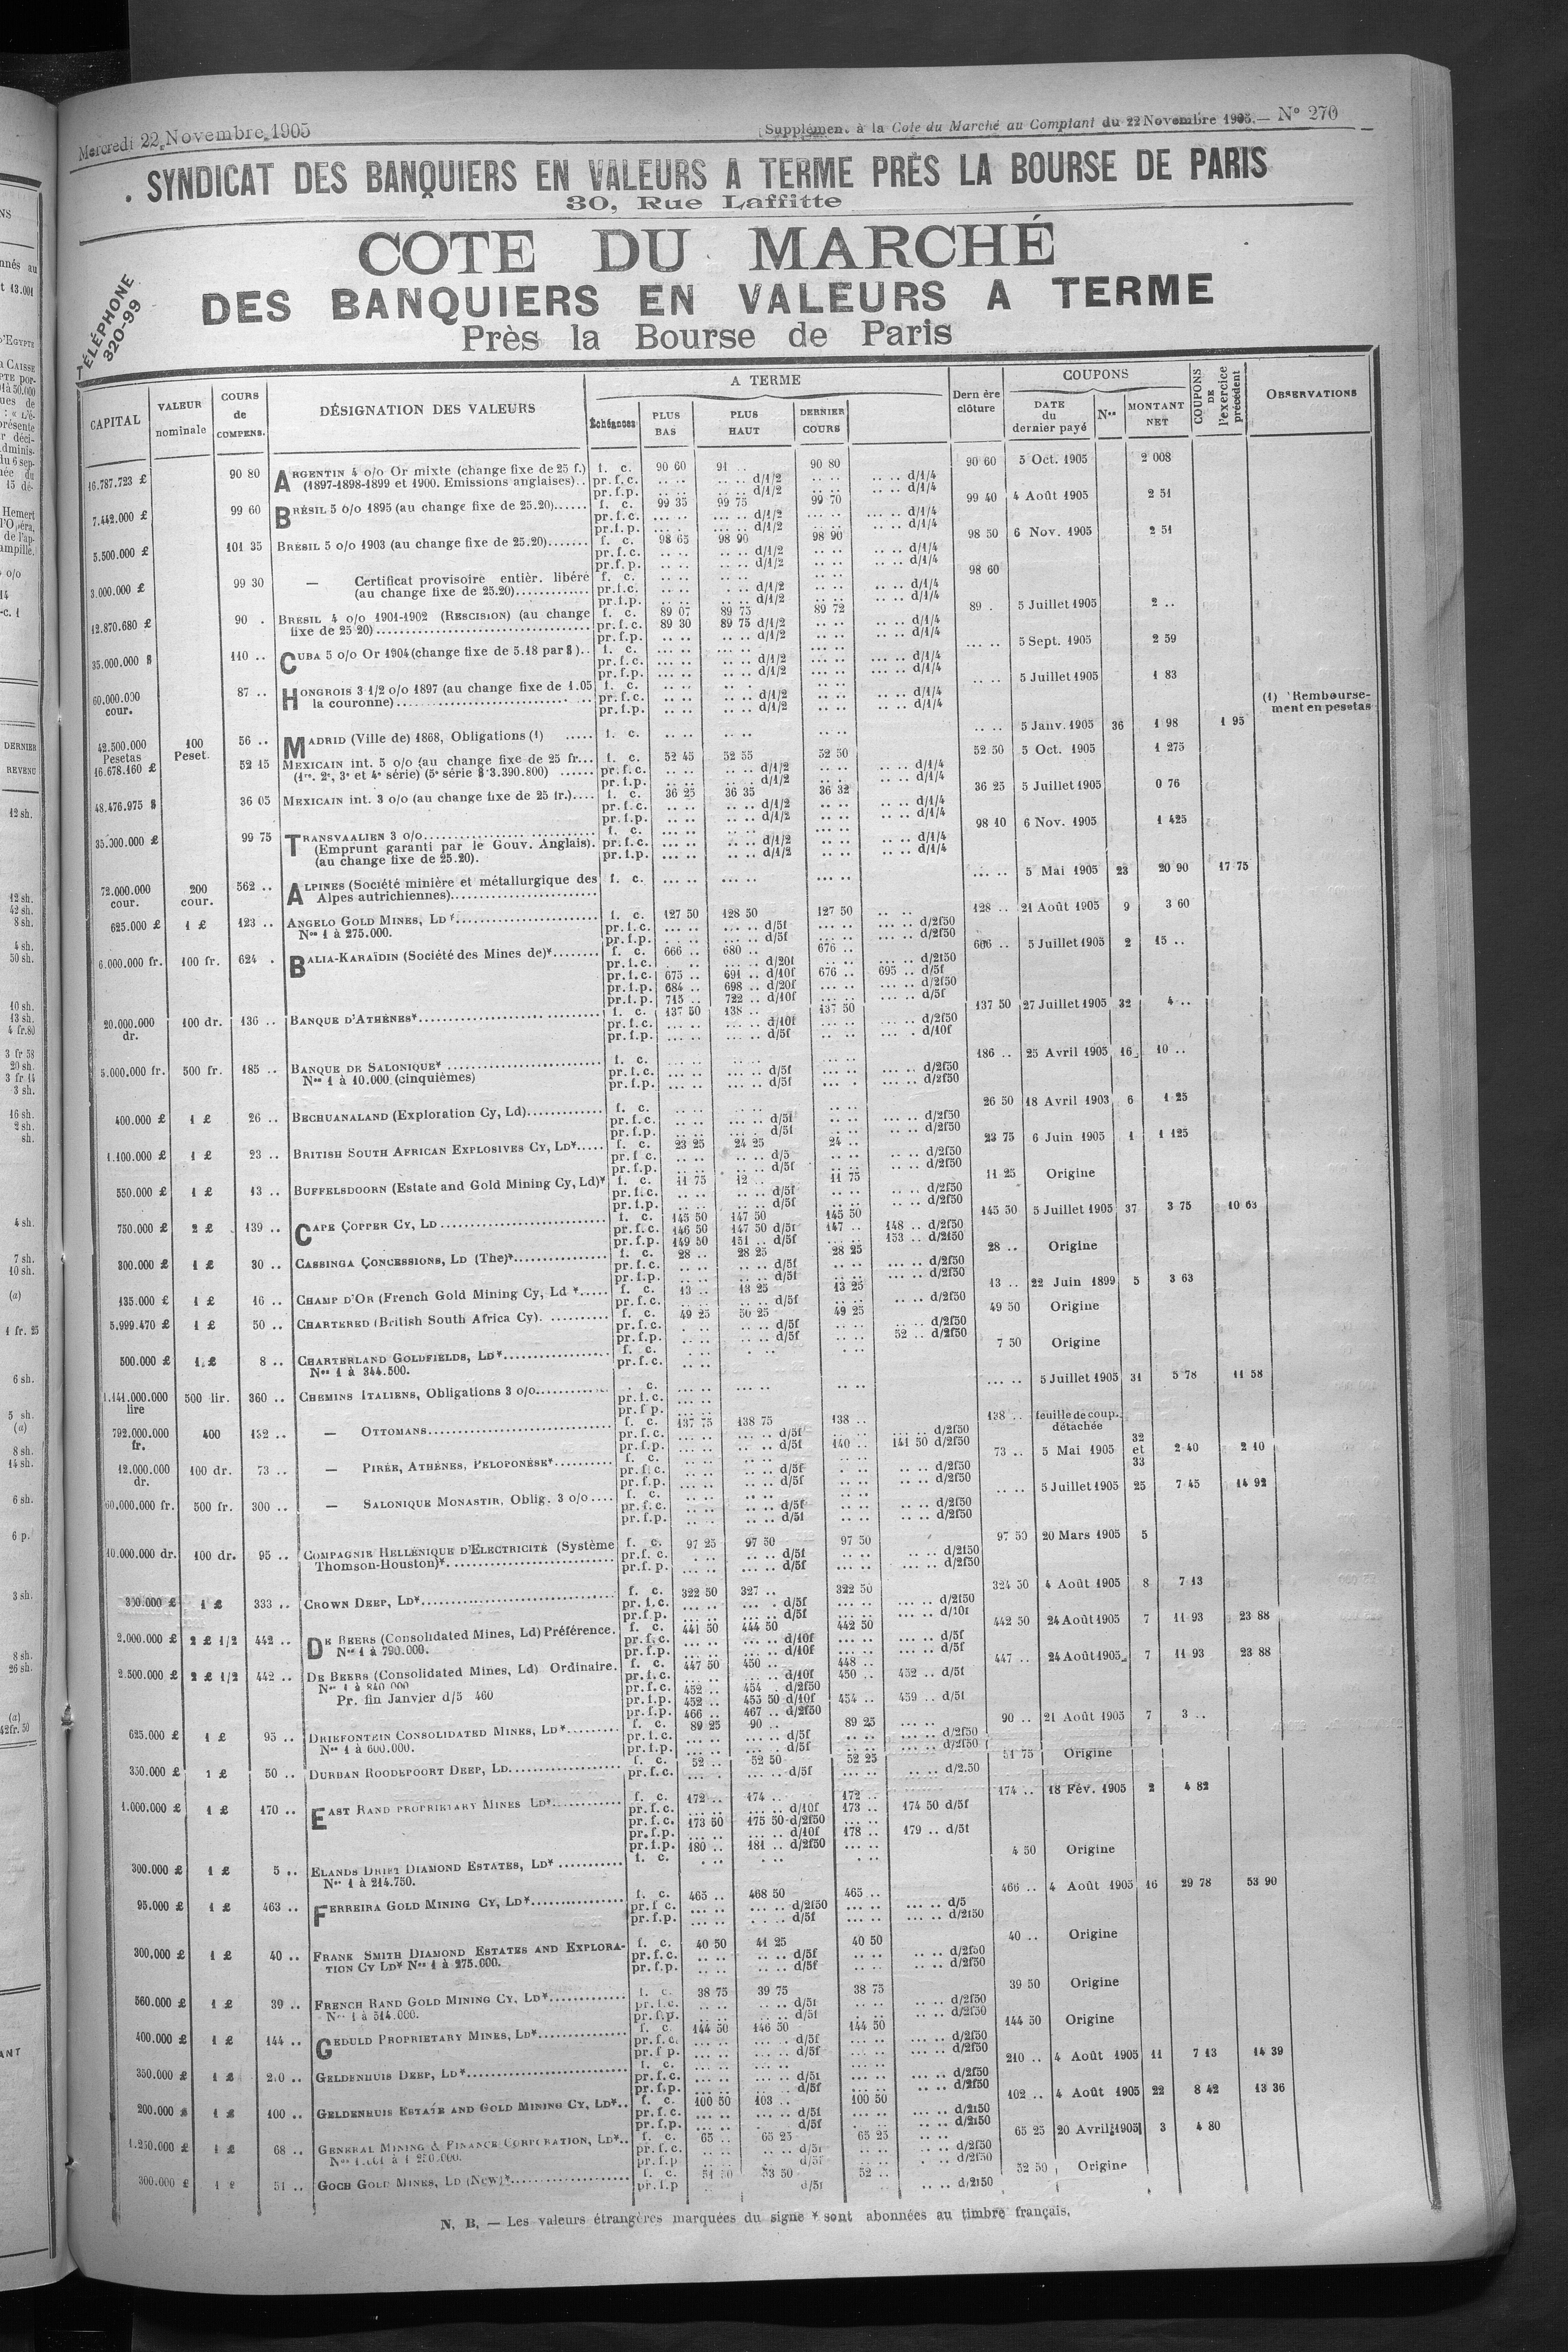 Mercredi 22 Novembre 1905
(Supplément à la Cote du Marché au Comptant du 22 Novembre 1905.— N° 270
SYNDICAT DES BANQUIERS EN VALEURS A TERME PRÈS LA BOURSE DE PARIS
30, Rue Laffitte
COTE DU MARCHÉ
DES BANQUIERS EN VALEURS A TERME
Près la Bourse de Paris
TÉLÉPHONE
320-99
CAPITAL VALEUR nominale COURS de COMPENS. DÉSIGNATION DES VALEURS A TERME Échéances PLUS BAS PLUS HAUT DERNIER COURS Dernière clôture COUPONS DATE du dernier payé Nos MONTANT NET COUPONS DE l'exercice précédent OBSERVATIONS
16.787.723 £ 90 80 ARGENTIN 4 o/o Or mixte (change fixe de 25 f.) f. c. 90 60 91 .. 90 80 90 60 5 Oct. 1905 2 008
(1897-1898-1899 et 1900. Emissions anglaises).. pr.f.c. .. .. .. .. d/1/2 .. .. .. .. d/1/4
pr.f.p. .. .. .. .. d/1/2 .. .. .. .. d/1/4
7.442.000 £ 99 60 BRÉSIL 5 o/o 1895 (au change fixe de 25.20)...... f. c. 99 35 99 75 99 70 99 40 4 Août 1905 2 51
pr.f.c. d/1/2 d/1/4
pr.f.p. d/1/2 d/1/4
5.500.000 £ 101 35 BRÉSIL 5 o/o 1903 (au change fixe de 25.20)....... f. c. 98 65 98 90 98 90 98 50 6 Nov. 1905 2 51
pr.f.c. d/1/2 d/1/4
pr.f.p. d/1/2 d/1/4
3.000.000 £ 99 30 — Certificat provisoire entièr. libéré f. c. 98 60
(au change fixe de 25.20)............. pr.f.c. d/1/2 d/1/4
pr.f.p. d/1/2 d/1/4
12.870.680 £ 90 . BRÉSIL 4 o/o 1901-1902 (RESCISION) (au change f. c. 89 07 89 75 89 72 89 . 5 Juillet 1905 2 ..
fixe de 25 20).................................... pr.f.c. 89 30 89 75 d/1/2 d/1/4
pr.f.p. d/1/2 d/1/4
35.000.000 $ 110 .. CUBA 5 o/o Or 1904 (change fixe de 5.18 par $).. f. c. 5 Sept. 1905 2 59
pr.f.c. d/1/2 d/1/4
pr.f.p. d/1/2 d/1/4
60.000.000 cour. 87 .. HONGROIS 3 1/2 o/o 1897 (au change fixe de 1.05 f. c. 5 Juillet 1905 1 83
la couronne)............................... pr.f.c. d/1/2 d/1/4
pr.f.p. d/1/2 d/1/4
(1) Rembourse-
ment en pesetas
42.500.000 Pesetas 100 Peset. 56 .. MADRID (Ville de) 1868, Obligations (1) ..... f. c. 5 Janv. 1905 36 1 98 1 95
16.678.160 £ 52 15 MEXICAIN int. 5 o/o (au change fixe de 25 fr... f. c. 52 45 52 55 52 50 52 50 5 Oct. 1905 1 275
(1re, 2e, 3e et 4e série) (5e série $ 3.390.800) ...... pr.f.c. d/1/2 d/1/4
pr.f.p. d/1/2 d/1/4
48.476.975 $ 36 05 MEXICAIN int. 3 o/o (au change fixe de 25 fr.).... f. c. 36 25 36 35 36 32 36 25 5 Juillet 1905 0 76
pr.f.c. d/1/2 d/1/4
pr.f.p. d/1/2 d/1/4
35.000.000 £ 99 75 TRANSVAALIEN 3 o/o........................... f. c. 98 10 6 Nov. 1905 1 425
(Emprunt garanti par le Gouv. Anglais). pr.f.c. d/1/2 d/1/4
(au change fixe de 25.20). pr.f.p. d/1/2 d/1/4
72.000.000 cour. 200 cour. 562 .. ALPINES (Société minière et métallurgique des f. c. 5 Mai 1905 23 20 90 17 75
Alpes autrichiennes)........................
625.000 £ 1 £ 123 .. ANGELO GOLD MINES, LD*........................ f. c. 127 50 128 50 127 50 128 .. 21 Août 1905 9 3 60
Nos 1 à 275.000. pr.f.c. d/5f d/2f50
pr.f.p. d/5f d/2f50
6.000.000 fr. 100 fr. 624 . BALIA-KARAÏDIN (Société des Mines de)*........ f. c. 666 .. 680 .. 676 .. 606 .. 5 Juillet 1905 2 15 ..
pr.f.c. d/20f d/2f50
pr.f.c. 675 .. 691 .. d/10f 676 .. 695 .. d/5f
pr.f.p. 684 .. 698 .. d/20f d/2f50
pr.f.p. 715 .. 722 .. d/10f d/5f
20.000.000 dr. 100 dr. 136 .. BANQUE D'ATHÈNES*............................... f. c. 137 50 138 .. 137 50 137 50 27 Juillet 1905 32 4 ..
pr.f.c. d/10f d/2f50
pr.f.p. d/5f d/10f
5.000.000 fr. 500 fr. 185 .. BANQUE DE SALONIQUE* .......................... f. c. 186 .. 25 Avril 1905 16 10 ..
Nos 1 à 10.000 (cinquièmes) pr.f.c. d/5f d/2f50
pr.f.p. d/5f d/2f50
400.000 £ 1 £ 26 .. BECHUANALAND (Exploration Cy, Ld)............. f. c. 26 50 18 Avril 1903 6 1 25
pr.f.c. d/5f d/2f50
pr.f.p. d/5f d/2f50
1.100.000 £ 1 £ 23 .. BRITISH SOUTH AFRICAN EXPLOSIVES CY, LD*..... f. c. 23 25 24 25 24 .. 23 75 6 Juin 1905 1 1 125
pr.f.c. d/5 d/2f50
pr.f.p. d/5f d/2f50
550.000 £ 1 £ 13 .. BUFFELSDOORN (Estate and Gold Mining Cy, Ld)* f. c. 11 75 12 .. 11 75 11 25 Origine
pr.f.c. d/5f d/2f50
pr.f.p. d/5f d/2f50
750.000 £ 2 £ 139 .. CAPE COPPER CY, LD............................ f. c. 145 50 147 50 145 50 145 50 5 Juillet 1905 37 3 75 10 63
pr.f.c. 146 50 147 50 d/5f 147 .. 148 .. d/2f50
pr.f.p. 149 50 151 .. d/5f 153 .. d/2f50
300.000 £ 1 £ 30 .. CASSINGA CONCESSIONS, LD (The)*................ f. c. 28 .. 28 25 28 25 28 .. Origine
pr.f.c. d/5f d/2f50
pr.f.p. d/5f d/2f50
135.000 £ 1 £ 16 .. CHAMP D'OR (French Gold Mining Cy, Ld *..... f. c. 13 .. 13 25 13 25 13 .. 22 Juin 1899 5 3 63
pr.f.c. d/5f d/2f50
5.999.470 £ 1 £ 50 .. CHARTERED (British South Africa Cy). .......... f. c. 49 25 50 25 49 25 49 50 Origine
pr.f.c. d/5f d/2f50
pr.f.p. d/5f 52 .. d/2f50
500.000 £ 1 £ 8 .. CHARTERLAND GOLDFIELDS, LD*.................. f. c. 7 50 Origine
Nos 1 à 344.500. pr.f.c.
1.141.000.000 lire 500 lir. 360 .. CHEMINS ITALIENS, Obligations 3 o/o............ . c. 5 Juillet 1905 31 5 78 11 58
pr.f.c.
pr.f.p.
792.000.000 fr. 400 132 .. — OTTOMANS............................... f. c. 137 75 138 75 138 .. 138 .. feuille de coup. détachée
pr.f.c. d/5f d/2f50
pr.f.p. d/5f 140 .. 141 50 d/2f50
12.000.000 dr. 100 dr. 73 .. — PIRÉE, ATHÈNES, PELOPONÈSE*.......... f. c. 73 .. 5 Mai 1905 32 et 33 2 40 2 10
pr.f.c. d/5f d/2f50
pr.f.p. d/5f d/2f50
60.000.000 fr. 500 fr. 300 .. — SALONIQUE MONASTIR, Oblig. 3 o/o.... f. c. 5 Juillet 1905 25 7 45 14 92
pr.f.c. d/5f d/2f50
pr.f.p. d/5f d/2f50
10.000.000 dr. 100 dr. 95 .. COMPAGNIE HELLÉNIQUE D'ELECTRICITÉ (Système f. c. 97 25 97 50 97 50 97 50 20 Mars 1905 5
Thomson-Houston)*............................. pr.f.c. d/5f d/2f50
pr.f.p. d/5f d/2f50
300.000 £ 1 £ 333 .. CROWN DEEP, LD*................................. f. c. 322 50 327 .. 322 50 324 50 4 Août 1905 8 7 13
pr.f.c. d/5f d/2f50
pr.f.p. d/5f d/10f
2.000.000 £ 2 £ 1/2 442 .. DE BEERS (Consolidated Mines, Ld) Préférence. f. c. 441 50 444 50 442 50 442 50 24 Août 1905 7 11 93 23 88
Nos 1 à 790.000. pr.f.c. d/10f d/5f
pr.f.p. d/10f d/5f
2.500.000 £ 2 £ 1/2 442 .. DE BEERS (Consolidated Mines, Ld) Ordinaire. f. c. 447 50 450 .. 448 .. 447 .. 24 Août 1905 7 11 93 23 88
Nos 1 à 840.000 pr.f.c. d/10f 450 .. 452 .. d/5f
Pr. fin Janvier d/5 460 pr.f.c. 452 .. 454 . d/2f50
pr.f.p. 452 .. 455 50 d/10f 454 .. 459 .. d/5f
pr.f.p. 466 .. 467 .. d/2f50
625.000 £ 1 £ 95 .. DRIEFONTEIN CONSOLIDATED MINES, LD*......... f. c. 89 25 90 .. 89 25 90 .. 21 Août 1905 7 3 ..
Nos 1 à 600.000. pr.f.c. d/5f d/2f50
pr.f.p. d/5f d/2f50
350.000 £ 1 £ 50 .. DURBAN ROODEPOORT DEEP, LD................... f. c. 52 .. 52 50 52 25 51 75 Origine
pr.f.c. d/5f d/2.50
1.000.000 £ 1 £ 170 .. EAST RAND PROPRIETARY MINES LD*............ f. c. 172 .. 174 .. 172 .. 174 .. 18 Fév. 1905 2 4 82
pr.f.c. d/10f 173 .. 174 50 d/5f
pr.f.c. 173 50 175 50 d/2f50
pr.f.p. d/10f 178 .. 179 .. d/5f
pr.f.p. 180 .. 181 .. d/2f50
300.000 £ 1 £ 5 .. ELANDS DRIFT DIAMOND ESTATES, LD* ........... f. c. 4 50 Origine
Nos 1 à 214.750.
95.000 £ 1 £ 463 .. FERREIRA GOLD MINING CY, LD*................ f. c. 465 .. 468 50 465 .. 466 .. 4 Août 1905 16 29 78 53 90
pr.f.c. d/2f50 d/5
pr.f.p. d/5f d/2f50
300.000 £ 1 £ 40 .. FRANK SMITH DIAMOND ESTATES AND EXPLORA- f. c. 40 50 41 25 40 50 40 .. Origine
TION CY LD* Nos 1 à 275.000. pr.f.c. d/5f d/2f50
pr.f.p. d/5f d/2f50
560.000 £ 1 £ 39 .. FRENCH RAND GOLD MINING CY, LD*............. f. c. 38 75 39 75 38 75 39 50 Origine
Nos 1 à 514.000. pr.f.c. d/5f d/2f50
pr.f.p. d/5f d/2f50
400.000 £ 1 £ 144 .. GEDULD PROPRIETARY MINES, LD*............... f. c. 144 50 146 50 144 50 144 50 Origine
pr.f.c. d/5f d/2f50
pr.f.p. d/5f d/2f50
350.000 £ 1 £ 2.0 .. GELDENHUIS DEEP, LD*........................... f. c. 210 .. 4 Août 1905 11 7 13 14 39
pr.f.c. d/5f d/2f50
pr.f.p. d/5f d/2f50
200.000 £ 1 £ 100 .. GELDENHUIS ESTATE AND GOLD MINING CY, LD*.. f. c. 100 50 103 .. 100 50 102 .. 4 Août 1905 22 8 42 13 36
pr.f.c. d/5f d/2f50
pr.f.p. d/5f d/2f50
1.250.000 £ 1 £ 68 .. GENERAL MINING & FINANCE CORPORATION, LD*.. f. c. 65 .. 65 25 65 25 65 25 20 Avril 1905 3 4 80
pr.f.c. d/5f d/2f50
pr.f.p d/5f d/2f50
300.000 £ 1 £ 51 .. GOCH GOLD MINES, LD (New)*................... f. c. 51 50 53 50 52 .. 52 50 Origine
pr.f.p d/5f d/2f50
N. B. — Les valeurs étrangères marquées du signe * sont abonnées au timbre français.